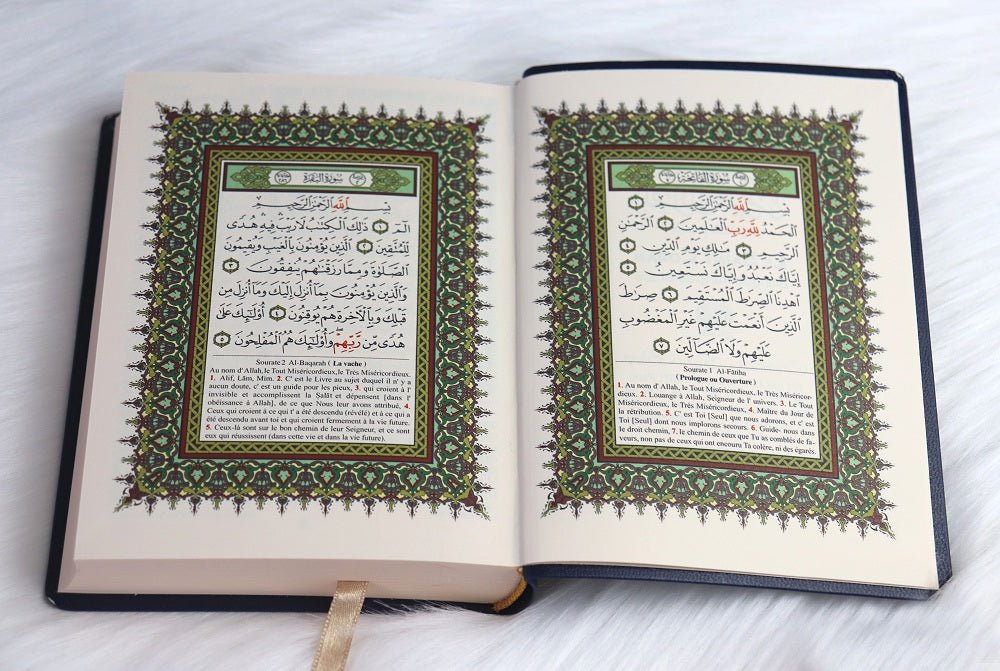 سورة الفاتحة
بِسْمِ ٱللَّهِ ٱلرَّحْمَٰنِ ٱلرَّحِيمِ ١
ٱلْحَمْدُ لِلَّهِ رَبِّ ٱلْعَٰلَمِينَ ٢ ٱلرَّحْمَٰنِ
ٱلرَّحِيمِ ٣ مَٰلِكِ يَوْمِ ٱلدِّينِ ٤
إِيَّاكَ نَعْبُدُ وَإِيَّاكَ نَسْتَعِينُ ٥
ٱهْدِنَا ٱلصِّرَٰطَ ٱلْمُسْتَقِيمَ ٦ صِرَٰطَ
ٱلَّذِينَ أَنْعَمْتَ عَلَيْهِمْ غَيْرِ ٱلْمَغْضُوبِ
عَلَيْهِمْ وَلَا ٱلضَّآلِّينَ ٧
Sourate 1 Al-Fâtiha
(Prologue ou Ouverture)
1. Au nom d' Allah, le Tout Miséricordieux, le Très Miséricor-
dieux. 2. Louange à Allah, Seigneur de l' univers. 3. Le Tout
Miséricordieux, le Très Miséricordieux, 4. Maître du Jour de
la rétribution. 5. C' est Toi [Seul] que nous adorons, et c' est
Toi [Seul] dont nous implorons secours. 6. Guide- nous dans
le droit chemin, 7. le chemin de ceux que Tu as comblés de fa-
veurs, non pas de ceux qui ont encouru Ta colère, ni des égarés.
سورة البقرة
بِسْمِ ٱللَّهِ ٱلرَّحْمَٰنِ ٱلرَّحِيمِ
الٓمٓ ١ ذَٰلِكَ ٱلْكِتَٰبُ لَا رَيْبَ فِيهِ هُدًى
لِّلْمُتَّقِينَ ٢ ٱلَّذِينَ يُؤْمِنُونَ بِٱلْغَيْبِ وَيُقِيمُونَ
ٱلصَّلَوٰةَ وَمِمَّا رَزَقْنَٰهُمْ يُنفِقُونَ ٣
وَٱلَّذِينَ يُؤْمِنُونَ بِمَآ أُنزِلَ إِلَيْكَ وَمَآ أُنزِلَ مِن
قَبْلِكَ وَبِٱلْءَاخِرَةِ هُمْ يُوقِنُونَ ٤ أُو۟لَٰٓئِكَ عَلَىٰ
هُدًى مِّن رَّبِّهِمْ وَأُو۟لَٰٓئِكَ هُمُ ٱلْمُفْلِحُونَ ٥
Sourate 2 Al-Baqarah ( La vache )
Au nom d' Allah, le Tout Miséricordieux, le Très Miséricordieux.
1. Alif, Lâm, Mim. 2. C' est le Livre au sujet duquel il n' y a
aucun doute, c' est un guide pour les pieux, 3. qui croient à l'
invisible et accomplissent la Salât et dépensent [dans l'
obéissance à Allah], de ce que Nous leur avons attribué, 4.
Ceux qui croient à ce qui t' a été descendu (révélé) et à ce qui a
été descendu avant toi et qui croient fermement à la vie future.
5. Ceux-là sont sur le bon chemin de leur Seigneur, et ce sont
eux qui réussissent (dans cette vie et dans la vie future).